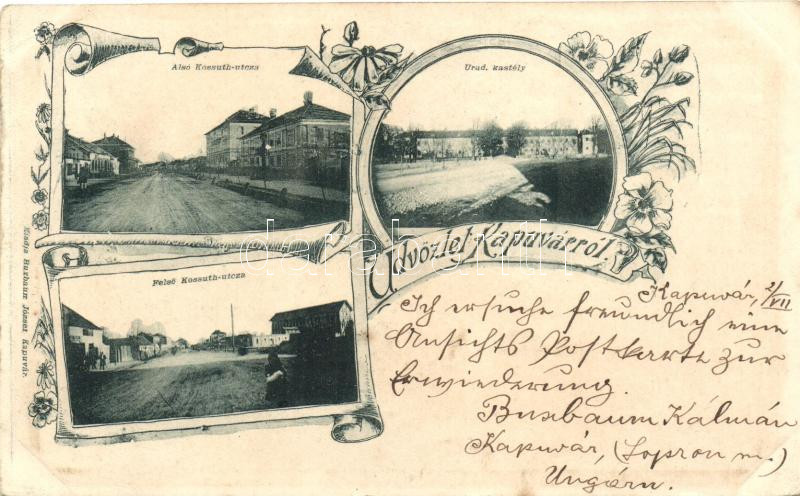 Alsó Kossuth-utcza
Urad. kastély
Üdvözlet Kapuvárról.
Felső Kossuth-utcza
Kiadja Buxbaum József, Kapuvár.
Kapuvár, 2/VII
Ich ersuche freundlich eine
Ansichts Postkarte zur
Erwiederung.
Buxbaum Kálmán
Kapuvár, (Sopron m.)
Ungarn.
darabanth